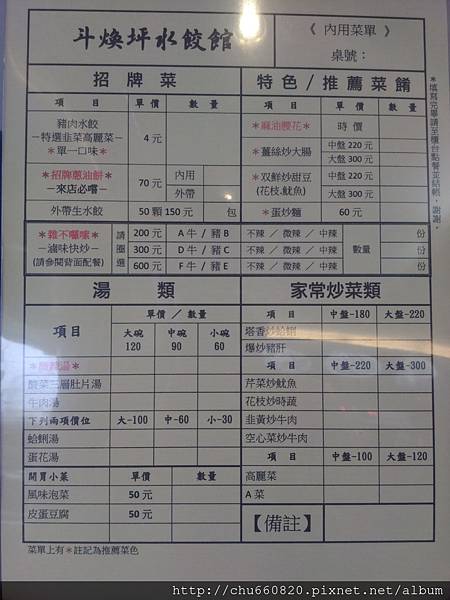 斗煥坪水餃館
《 內用菜單 》
桌號：
招牌菜
項 目 單價 數量
豬肉水餃
－特選韭菜高麗菜－
＊單一口味＊
4 元
＊招牌蔥油餅＊
－來店必嚐－
70 元
內用
外帶
外帶生水餃 50 顆 150 元 包
特色/推薦菜餚
＊麻油腰花＊ 時價
＊薑絲炒大腸
中盤 220 元
大盤 300 元
＊双鮮炒甜豆
(花枝.魷魚)
中盤 220 元
大盤 300 元
＊蛋炒麵 60 元
＊填寫完畢請至櫃台點餐並結帳，謝謝。
＊雜不囉嗦＊
－滷味快炒－
(請參閱背面配餐)
請圈選
200 元 A 牛 / 豬 B 不辣 ／ 微辣 ／ 中辣 份
300 元 D 牛 / 豬 C 不辣 ／ 微辣 ／ 中辣 數量 份
600 元 F 牛 / 豬 E 不辣 ／ 微辣 ／ 中辣 份
湯 類
項目
單價 ／ 數量
大碗 中碗 小碗
120 90 60
酸菜三層肚片湯
牛肉湯
下列兩項價位 大-100 中-60 小-30
蛤蜊湯
蛋花湯
開胃小菜 單價 數量
風味泡菜 50 元
皮蛋豆腐 50 元
家常炒菜類
項 目 中盤-180 大盤-220
塔香炒蛤蜊
爆炒豬肝
項 目 中盤-220 大盤-300
芹菜炒魷魚
花枝炒時蔬
韭黃炒牛肉
空心菜炒牛肉
項 目 中盤-100 大盤-120
高麗菜
A 菜
【備註】
菜單上有＊註記為推薦菜色
http://chu660820.pixnet.net/album